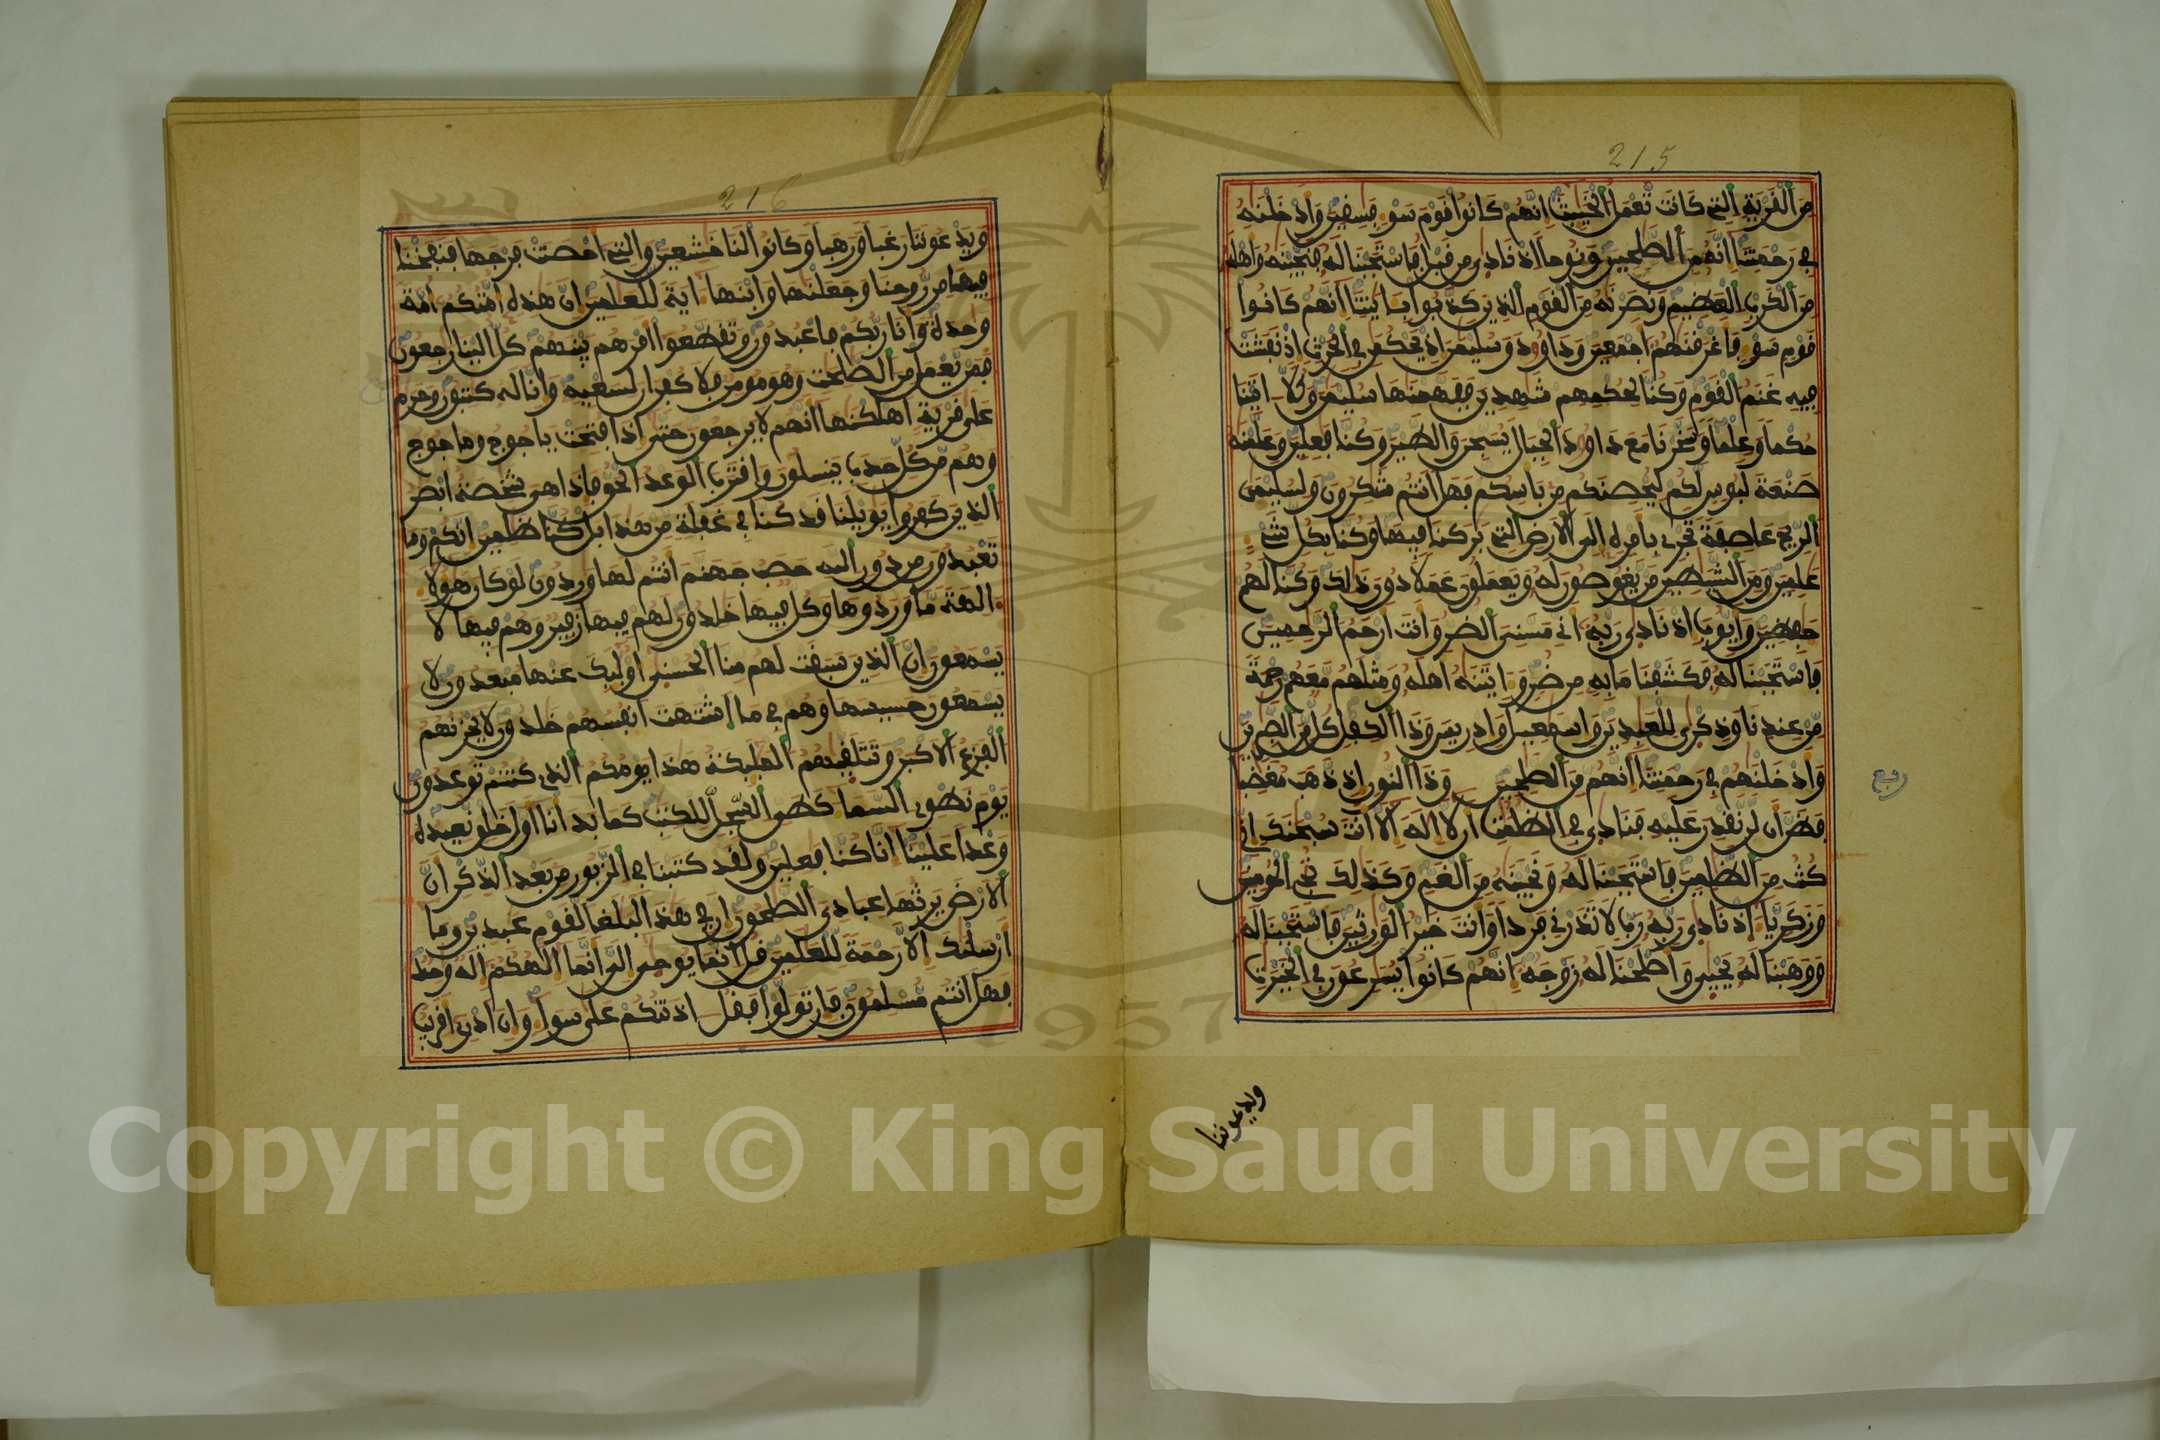 215
من القرية التي كانت تعمل الخبيث انهم كانوا قوم سو فسفين وادخلنه
في رحمتنا انه من الصلحين ونوحا اذ نادى من قبل فاستجبنا له فنجينه واهله
من الكرب العظيم ونصرنه من القوم الذين كذبوا بايتنا انهم كانوا
قوم سو فاغرقنهم اجمعين وداوود وسليمن اذ يحكمن في الحرث اذ نفشت
فيه غنم القوم وكنا لحكمهم شهدين ففهمنها سليمن وكلا اتينا
حكما وعلما وسخرنا مع داوود الجبال يسبحن والطير وكنا فعلين وعلمنه
صنعة لبوس لكم ليحصنكم من باسكم فهل انتم شكرون ولسليمن
الريح عاصفة تجري بامره الى الارض التي بركنا فيها وكنا بكل شيء
علمين ومن الشيطين من يغوصون له ويعملون عملا دون ذلك وكنا لهم
حفظين وايوب اذ نادى ربه اني مسني الضر وانت ارحم الرحمين
فاستجبنا له فكشفنا ما به من ضر واتينه اهله ومثلهم معهم رحمة
من عندنا وذكرى للعبدين واسمعيل وادريس وذا الكفل كل من الصبرين
وادخلنهم في رحمتنا انهم من الصلحين وذا النون اذ ذهب مغضبا
فظن ان لن نقدر عليه فنادى في الظلمت ان لا اله الا انت سبحنك اني
كنت من الظلمين فاستجبنا له ونجينه من الغم وكذلك نجي المومنين
وزكرياء اذ نادى ربه رب لا تذرني فردا وانت خير الورثين فاستجبنا له
ووهبنا له يحيى واصلحنا له زوجه انهم كانوا يسرعون في الخيرت
ويدعوننا
216
ويدعوننا رغبا ورهبا وكانوا لنا خشعين والتي احصنت فرجها فنفخنا
فيها من روحنا وجعلنها وابنها اية للعلمين ان هذه امتكم امة
وحدة وانا ربكم فاعبدون وتقطعوا امرهم بينهم كل الينا رجعون
فمن يعمل من الصلحت وهو مومن فلا كفران لسعيه وانا له كتبون وحرم
على قرية اهلكنها انهم لا يرجعون حتى اذا فتحت ياجوج وماجوج
وهم من كل حدب ينسلون واقترب الوعد الحق فاذا هي شخصة ابصر
الذين كفروا يويلنا قد كنا في غفلة من هذا بل كنا ظلمين انكم وما
تعبدون من دون الله حصب جهنم انتم لها وردون لو كان هولا
الهة ما وردوها وكل فيها خلدون لهم فيها زفير وهم فيها لا
يسمعون ان الذين سبقت لهم منا الحسنى اوليك عنها مبعدون لا
يسمعون حسيسها وهم في ما اشتهت انفسهم خلدون لا يحزنهم
الفزع الاكبر وتتلقيهم المليكة هذا يومكم الذي كنتم توعدون
يوم نطوي السما كطي السجل للكتب كما بدانا اول خلق نعيده
وعدا علينا انا كنا فعلين ولقد كتبنا في الزبور من بعد الذكر ان
الارض يرثها عبادي الصلحون ان في هذا لبلغا لقوم عبدين وما
ارسلنك الا رحمة للعلمين قل انما يوحى الي انما الهكم اله وحد
فهل انتم مسلمون فان تولوا فقل اذنتكم على سواء وان ادري اقريب
Copyright © King Saud University
1957